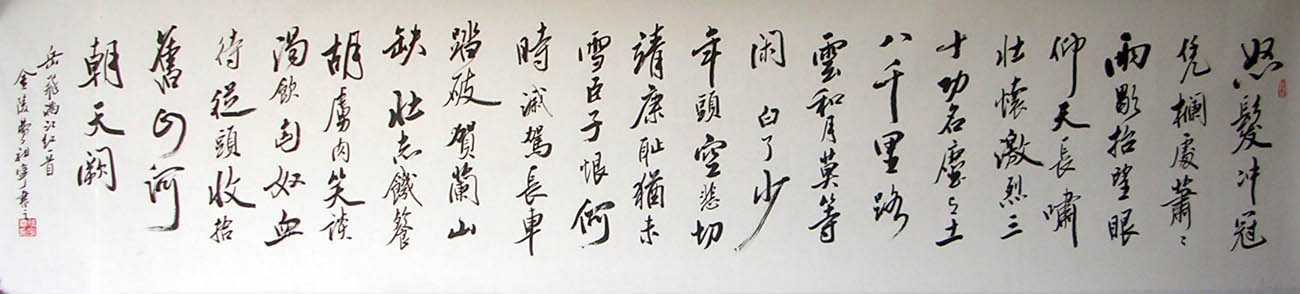 怒髮冲冠
凭欄處蕭〻
雨歇抬望眼
仰天長嘯
壯懷激烈三
十功名塵与土
八千里路
雲和月莫等
闲 白了少
年頭空悲切
靖康耻猶未
雪臣子恨何
時滅駕長車
踏破賀蘭山
缺壯志饑餐
胡虜肉笑談
渴飲匈奴血
待從頭收拾
舊山河
朝天闕
岳飛滿江紅一首
金陵